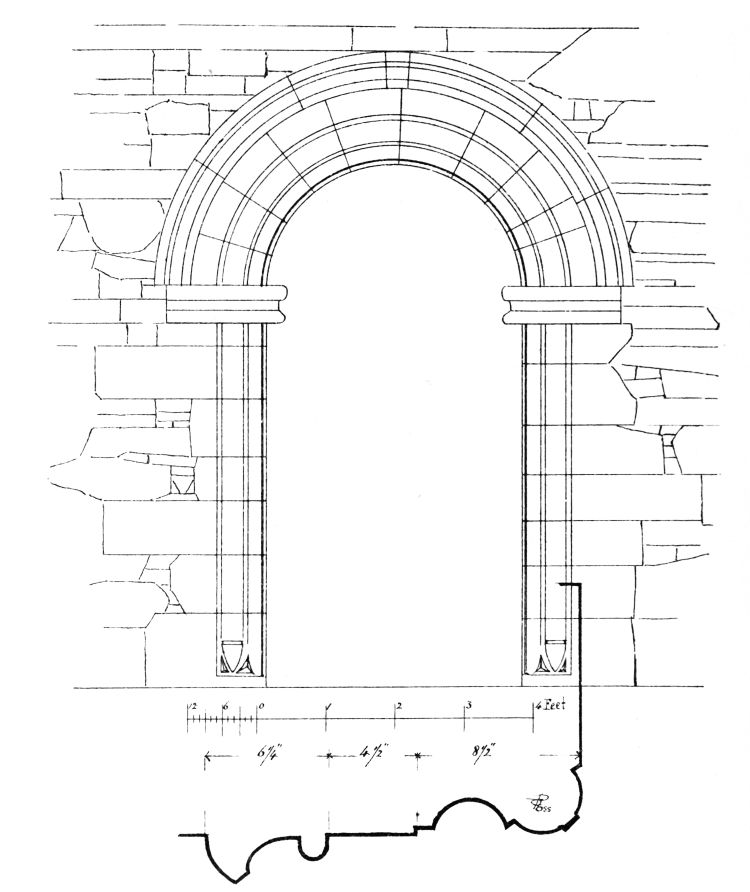 12 6 0 1 2 3 4 Feet
6¼" 4½" 8½"